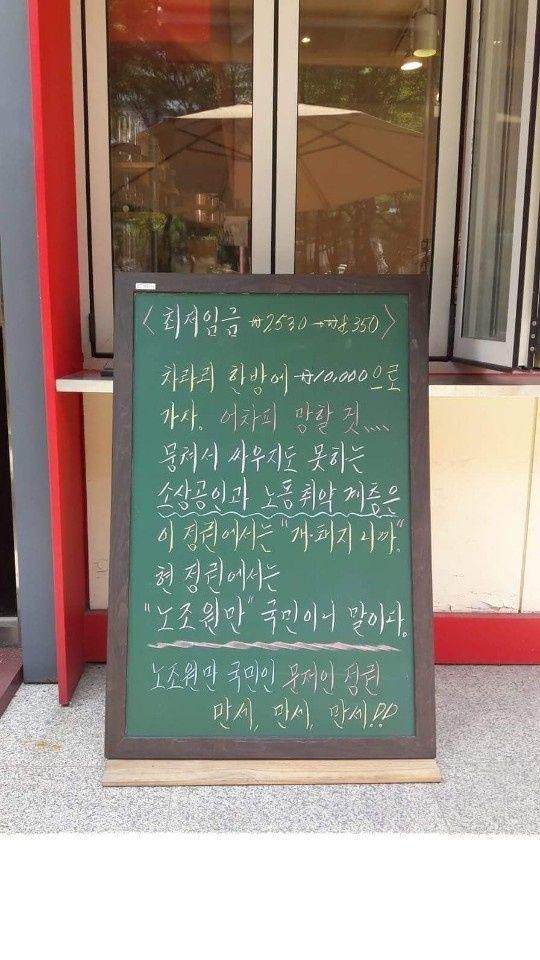 <최저임금 ₩7530→₩8350>
차라리 한방에 ₩10.000으로
가자. 어차피 망할 것....
뭉쳐서 싸우지도 못하는
소상공인과 노동취약 계층은
이 정권에서는 "개·돼지 니까".
현 정권에서는
"노조원만" 국민이니 말이다.
노조원만 국민인 문재인 정권
만세, 만세, 만세!!